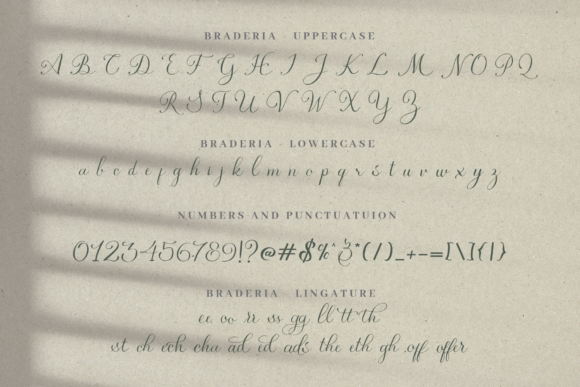 BRADERIA - UPPERCASE
A B C D E F G H I J K L M N O P Q
R S T U V W X Y Z
BRADERIA - LOWERCASE
a b c d e f g h i j k l m n o p q r s t u v w x y z
NUMBERS AND PUNCTUATUION
0123456789!?@#$%^&*(/)_+-=[\]{|}
BRADERIA LINGATURE
ee oo rr ss gg ll tt th
st ch cch chu ad id ads the eth gh off offer